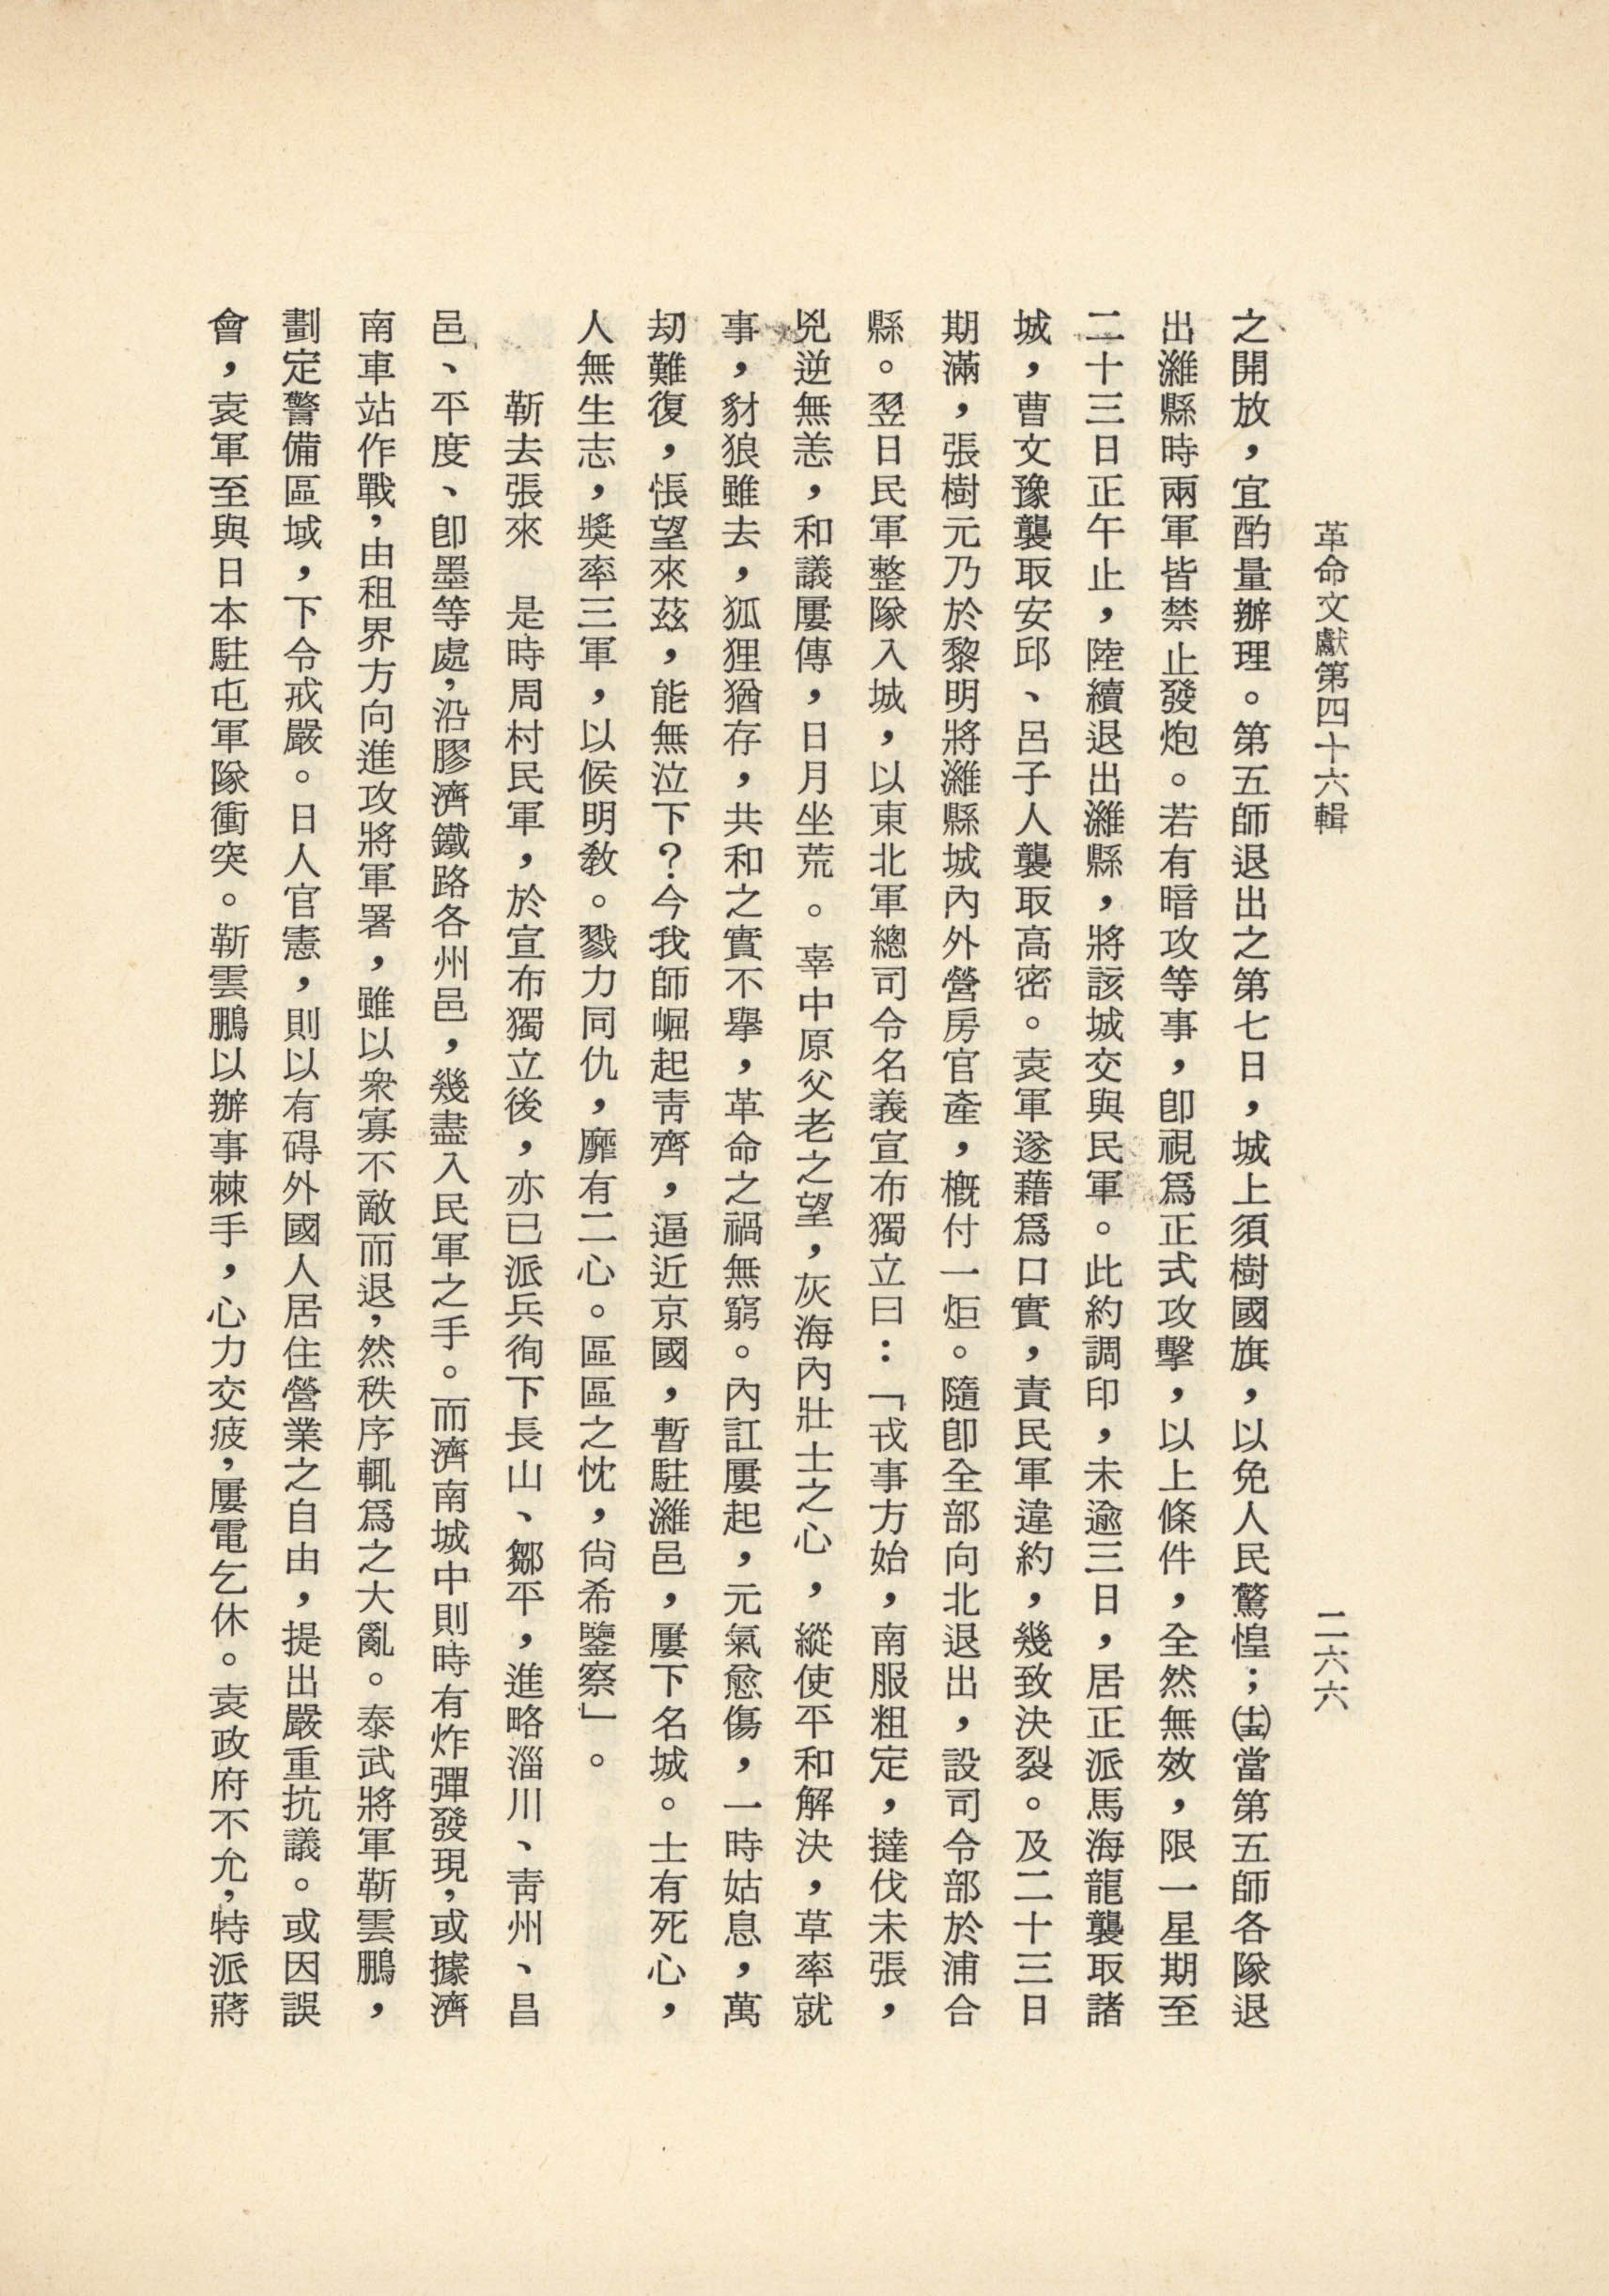 革命文獻第四十六輯
二六六
之開放，宜酌量辦理。第五師退出之第七日，城上須樹國旗，以免人民驚惶；㈩㈤當第五師各隊退
出濰縣時兩軍皆禁止發炮。若有暗攻等事，卽視爲正式攻擊，以上條件，全然無效，限一星期至
二十三日正午止，陸續退出濰縣，將該城交與民軍。此約調印，未逾三日，居正派馬海龍襲取諸
城，曹文豫襲取安邱、呂子人襲取高密。袁軍遂藉爲口實，責民軍違約，幾致決裂。及二十三日
期滿，張樹元乃於黎明將濰縣城內外營房官產，槪付一炬。隨卽全部向北退出，設司令部於浦合
縣。翌日民軍整隊入城，以東北軍總司令名義宣布獨立曰：「戎事方始，南服粗定，撻伐未張，
兇逆無恙，和議屢傳，日月坐荒。辜中原父老之望，灰海內壯士之心，縱使平和解決，草率就
事，豺狼雖去，狐狸猶存，共和之實不舉，革命之禍無窮。內訌屢起，元氣愈傷，一時姑息，萬
劫難復，悵望來茲，能無泣下？今我師崛起靑齊，逼近京國，暫駐濰邑，屢下名城。士有死心，
人無生志，獎率三軍，以候明敎。戮力同仇，靡有二心。區區之忱，尙希鑒察」。
靳去張來　是時周村民軍，於宣布獨立後，亦已派兵徇下長山、鄒平，進略淄川、靑州、昌
邑、平度、卽墨等處，沿膠濟鐵路各州邑，幾盡入民軍之手。而濟南城中則時有炸彈發現，或據濟
南車站作戰，由租界方向進攻將軍署，雖以衆寡不敵而退，然秩序輒爲之大亂。泰武將軍靳雲鵬，
劃定警備區域，下令戒嚴。日人官憲，則以有碍外國人居住營業之自由，提出嚴重抗議。或因誤
會，袁軍至與日本駐屯軍隊衝突。靳雲鵬以辦事棘手，心力交疲，屢電乞休。袁政府不允，特派蔣